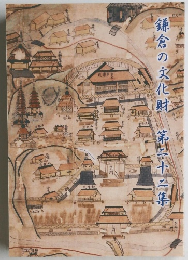 鎌倉の文化財　第二十二集